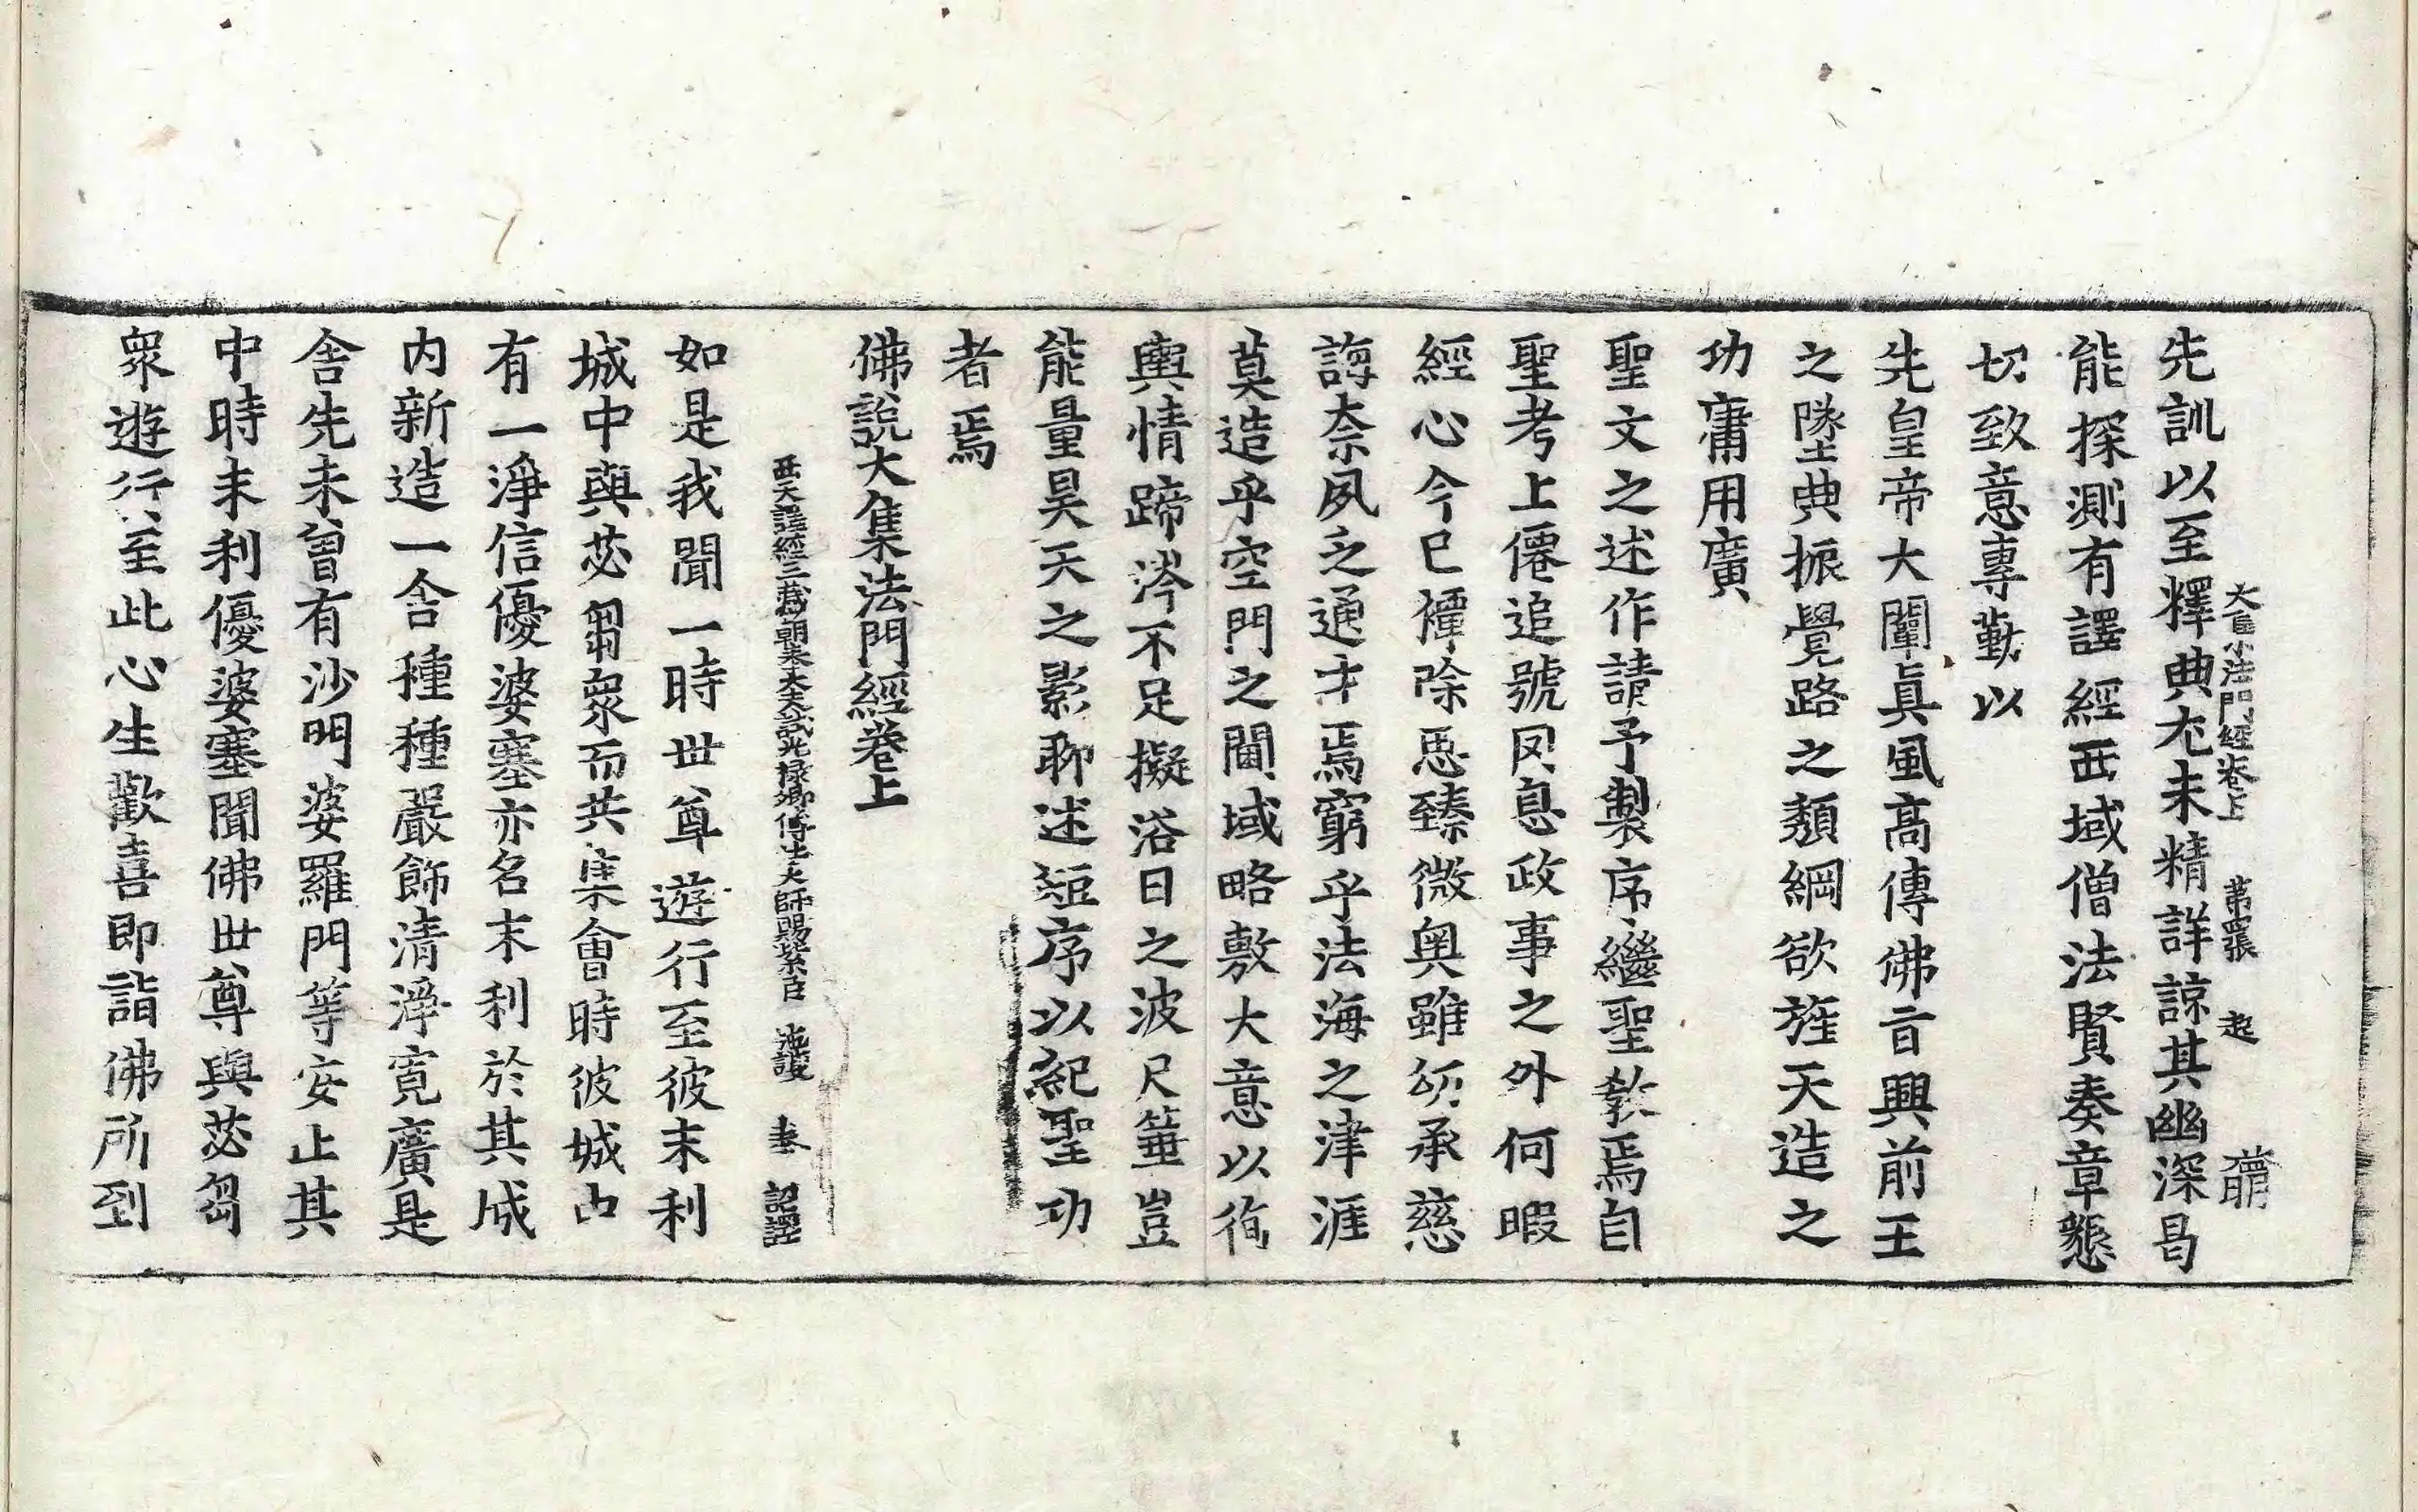 大集法門經卷上 第四張 起
先訓以至釋典尤未精詳諒其幽深曷
能探測有譯經西域僧法賢奏章懇
切致意專勤以
先皇帝大闡眞風高傳佛音興前王
之墜典振覺路之頹綱欲旌天造之
功庸用廣
聖文之述作請予製序繼聖教焉自
聖考上僊追號罔息政事之外何暇
經心今已禫除思臻微奥雖仰承慈
誨柰夙乏通才焉窮乎法海之津涯
莫造乎空門之閫域略敷大意以徇
輿情蹄涔不足擬浴日之波尺箠豈
能量昊天之影聊述短序以紀聖功
者焉
佛說大集法門經卷上
西天譯經三藏朝奉大夫試光祿卿傳法大師賜紫臣 施護 奉 詔譯
如是我聞一時世尊遊行至彼末利
城中與苾芻衆而共集會時彼城內
有一淨信優婆塞亦名末利於其城
内新造一舍種種嚴飾清淨寬廣是
舍先未曾有沙門婆羅門等安止其
中時末利優婆塞聞佛世尊與苾芻
衆遊行至此心生歡喜即詣佛所到